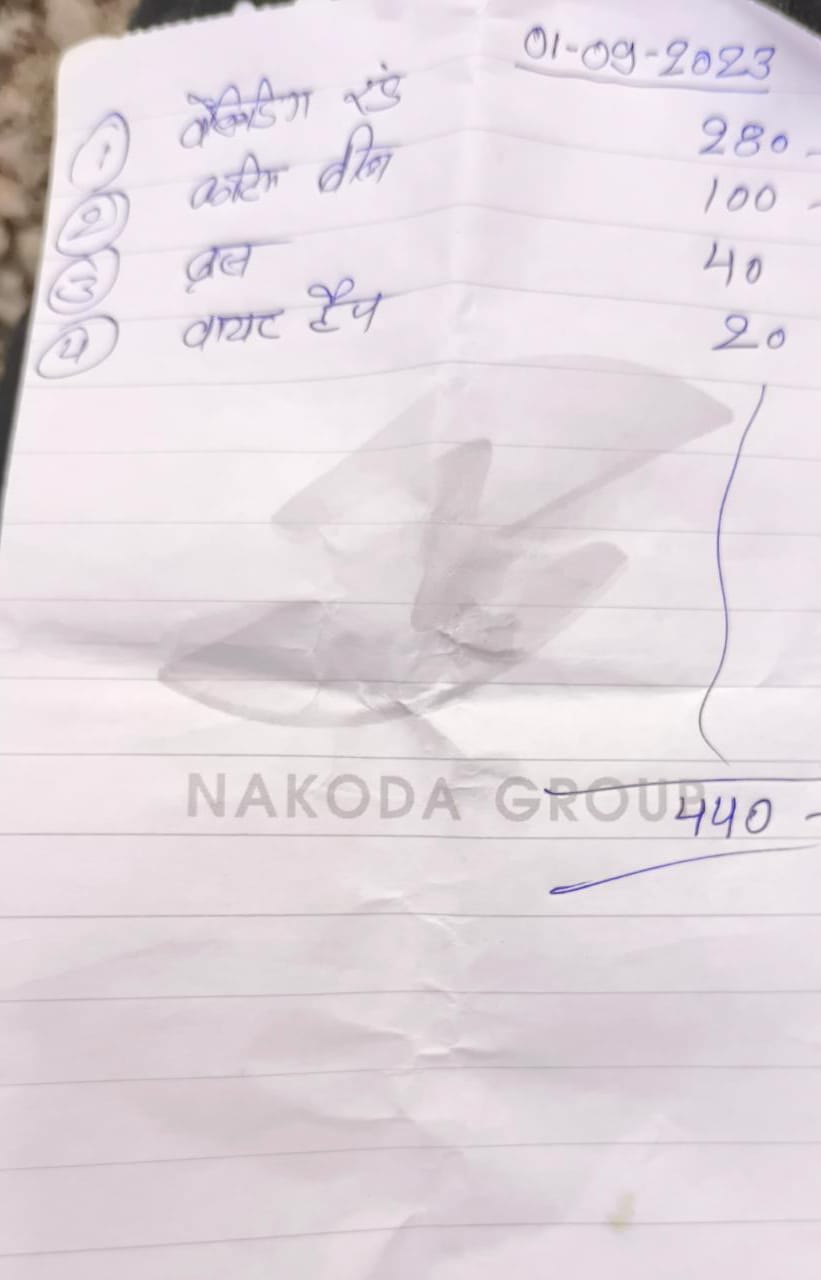 01-09-2023
① वेल्डिंग रॉड 280-
② कटिंग व्हील 100-
③ ब्रस 40
④ वायट टैप 20
NAKODA GROUP
440-